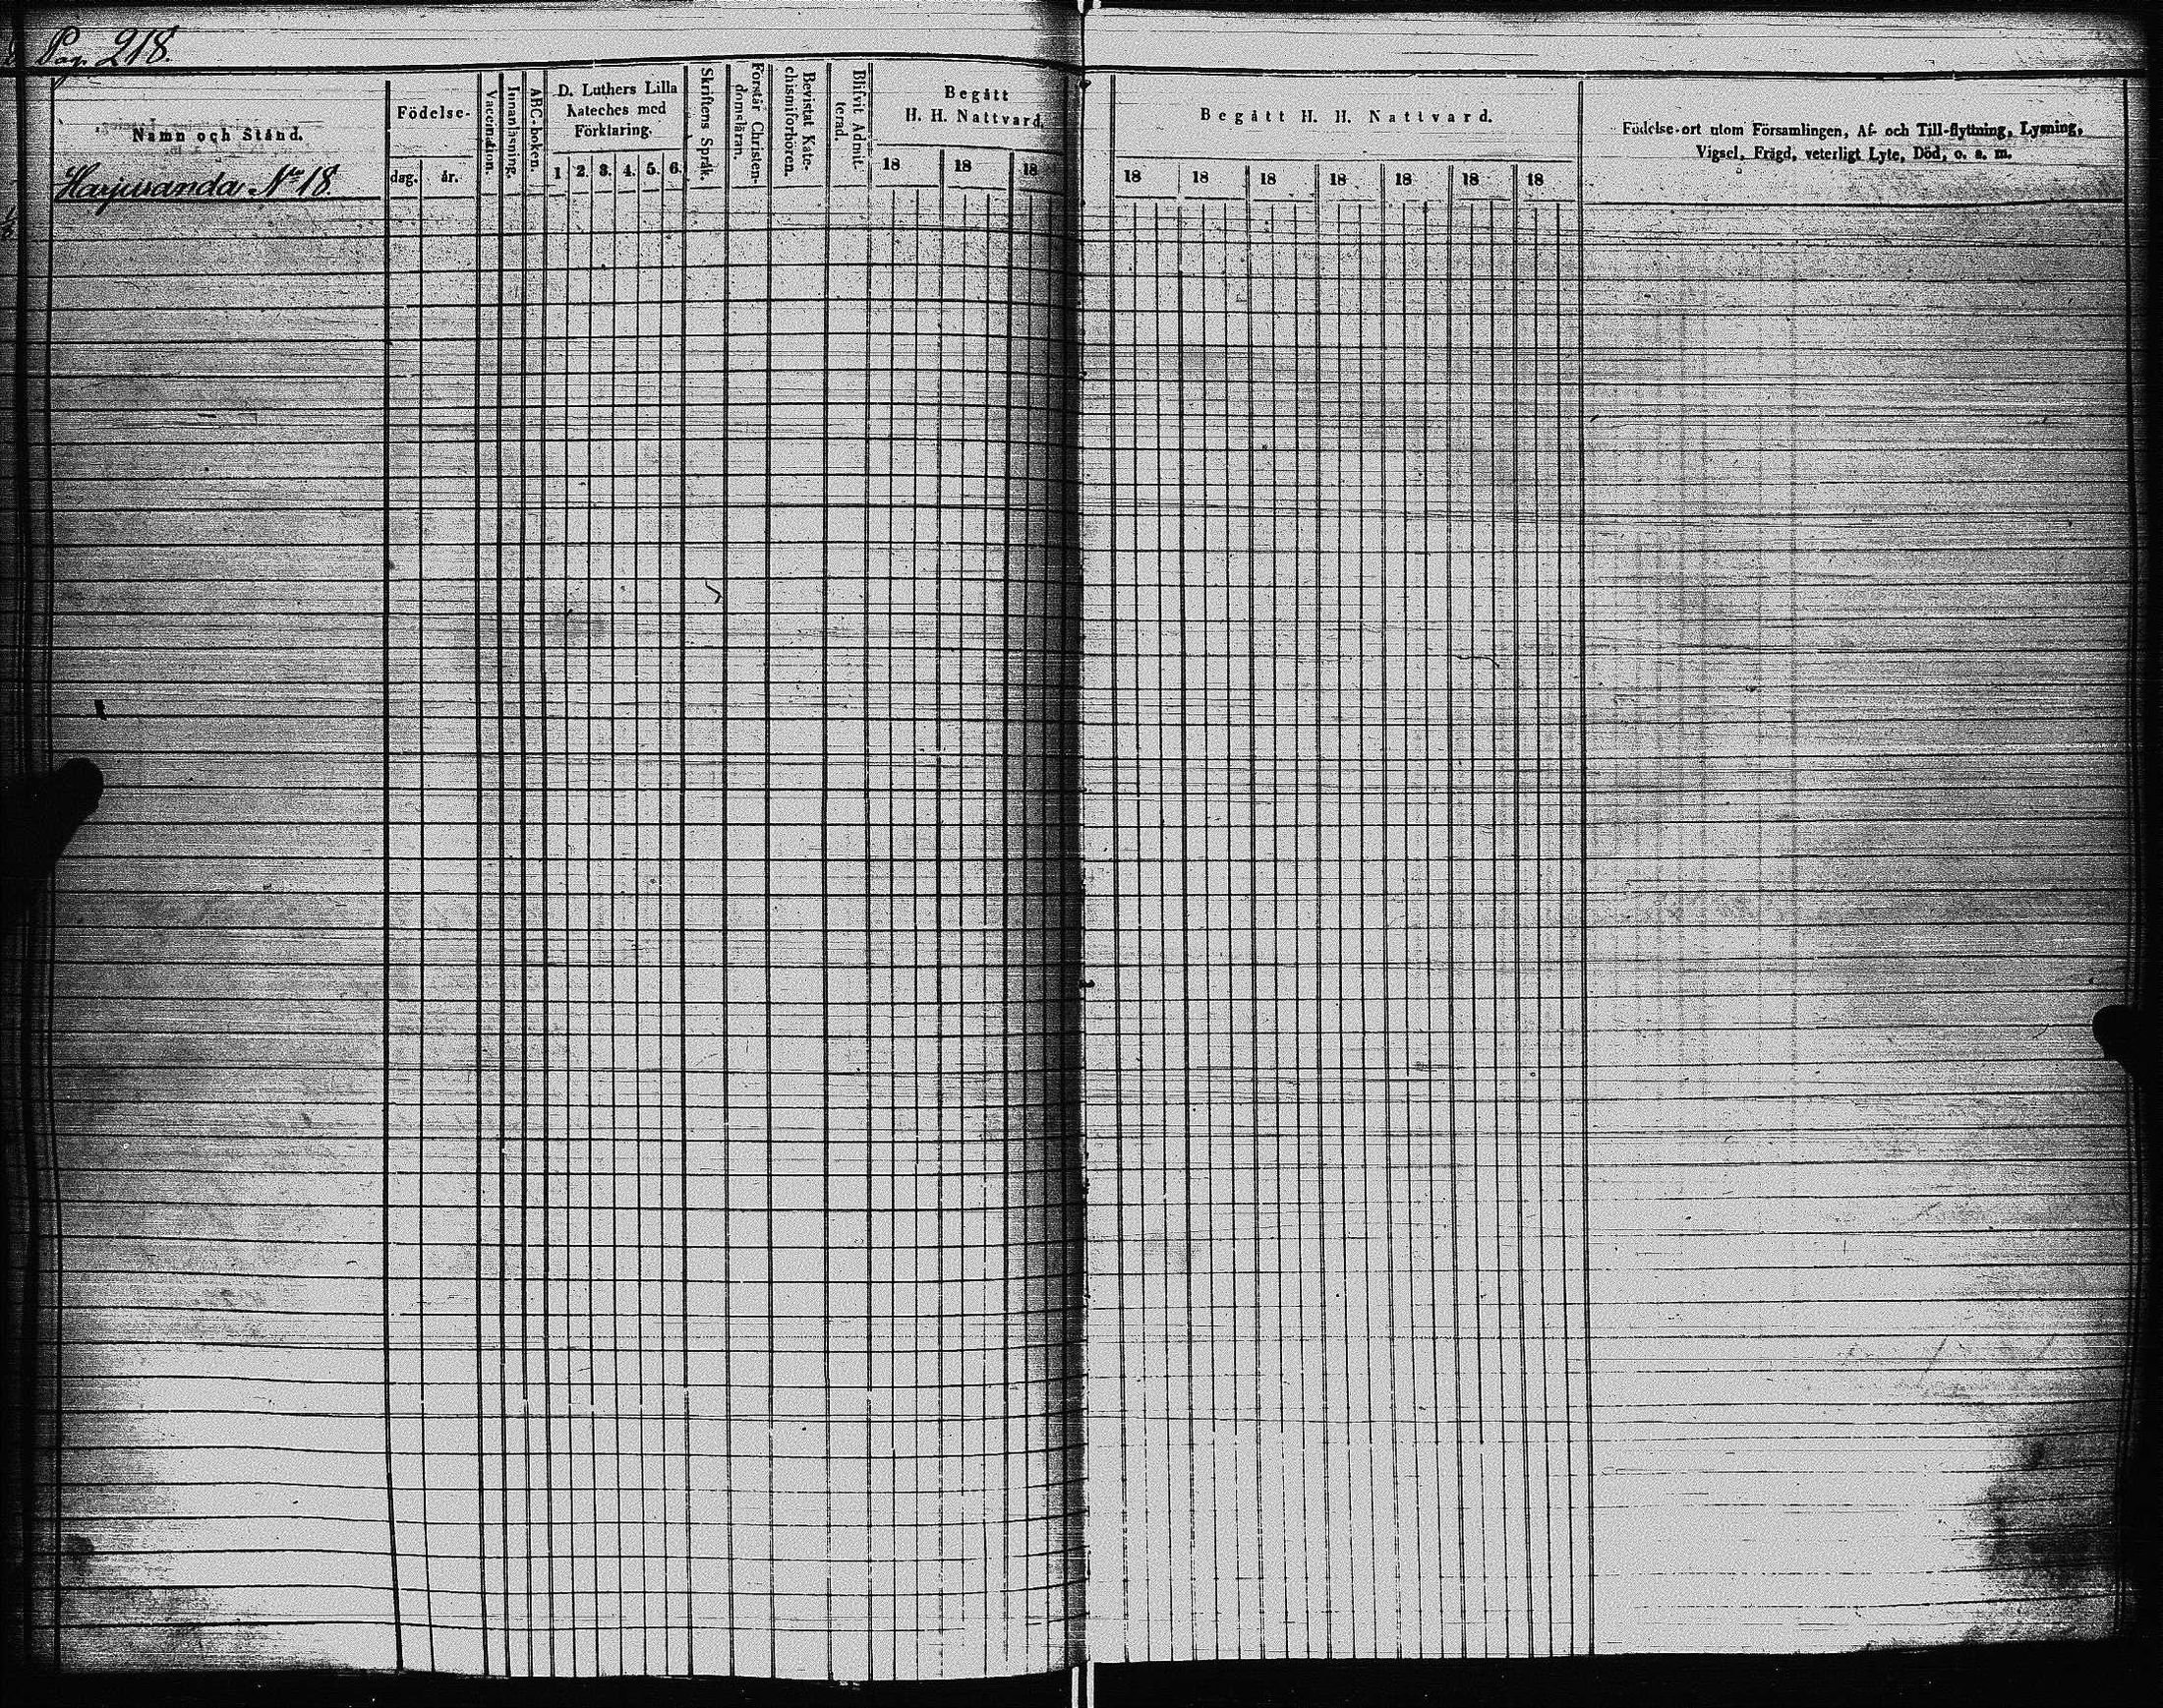 Pag. 218.
Namn och Stånd.
Harjuranda No 18
Födelse-
dag. år.
Vaccination.
Innanläsning.
ABC-boken.
D. Luthers Lilla
Kateches med
Förklaring.
1 2. 3. 4. 5. 6.
Skriftens Språk.
Förstår Christen-
domsläran.
Bevistat Kate-
chismiförhören.
Blifvit Admit-
terad.
Begått
H. H. Nattvard.
18 18 18
Begått H. H. Nattvard.
18 18 18 18 18 18 18
Födelse-ort utom Församlingen, Af- och Till-flyttning, Lysning,
Vigsel, Frägd, veterligt Lyte, Död, o. s. m.